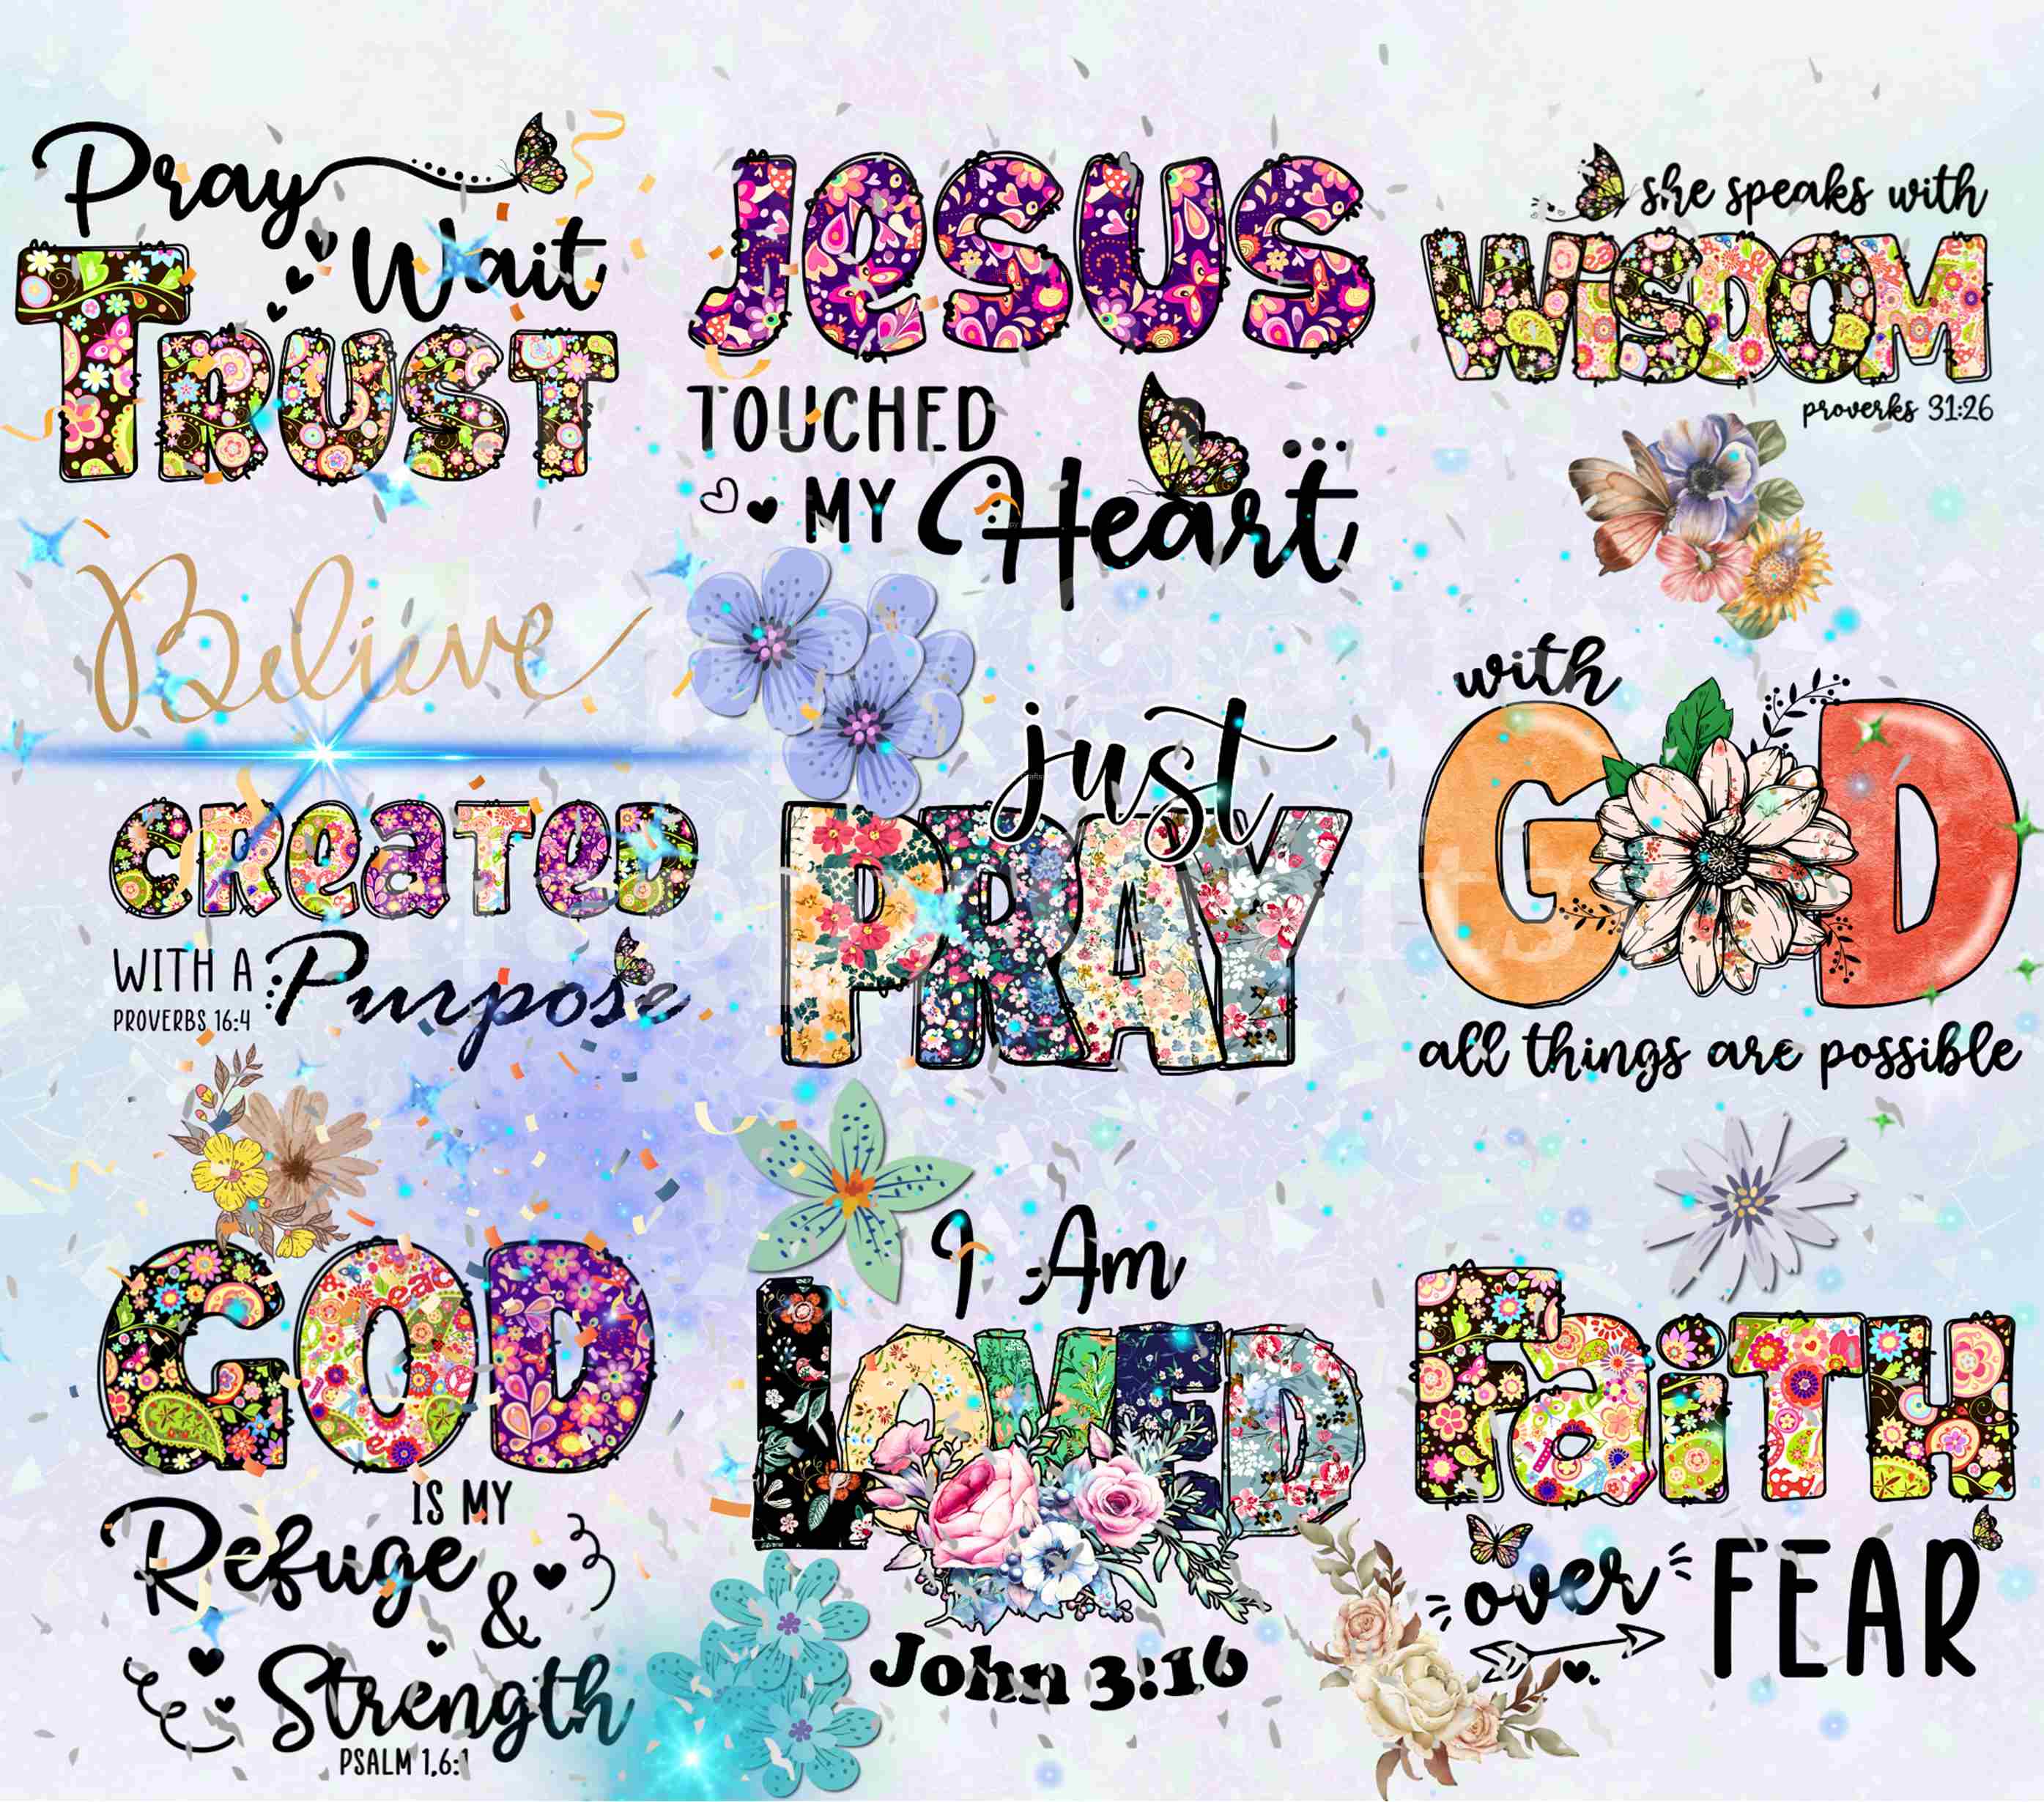 Pray
Wait
TRUST
JESUS
TOUCHED
MY Heart
she speaks with
WISDOM
proverks 31:26
Believe
CREATED
WITH A Purpose
PROVERBS 16:4
just
PRAY
with
GOD
all things are possible
GOD
IS MY
Refuge
&
Strength
PSALM 1,6:1
I Am
LOVED
John 3:16
FAITH
over FEAR